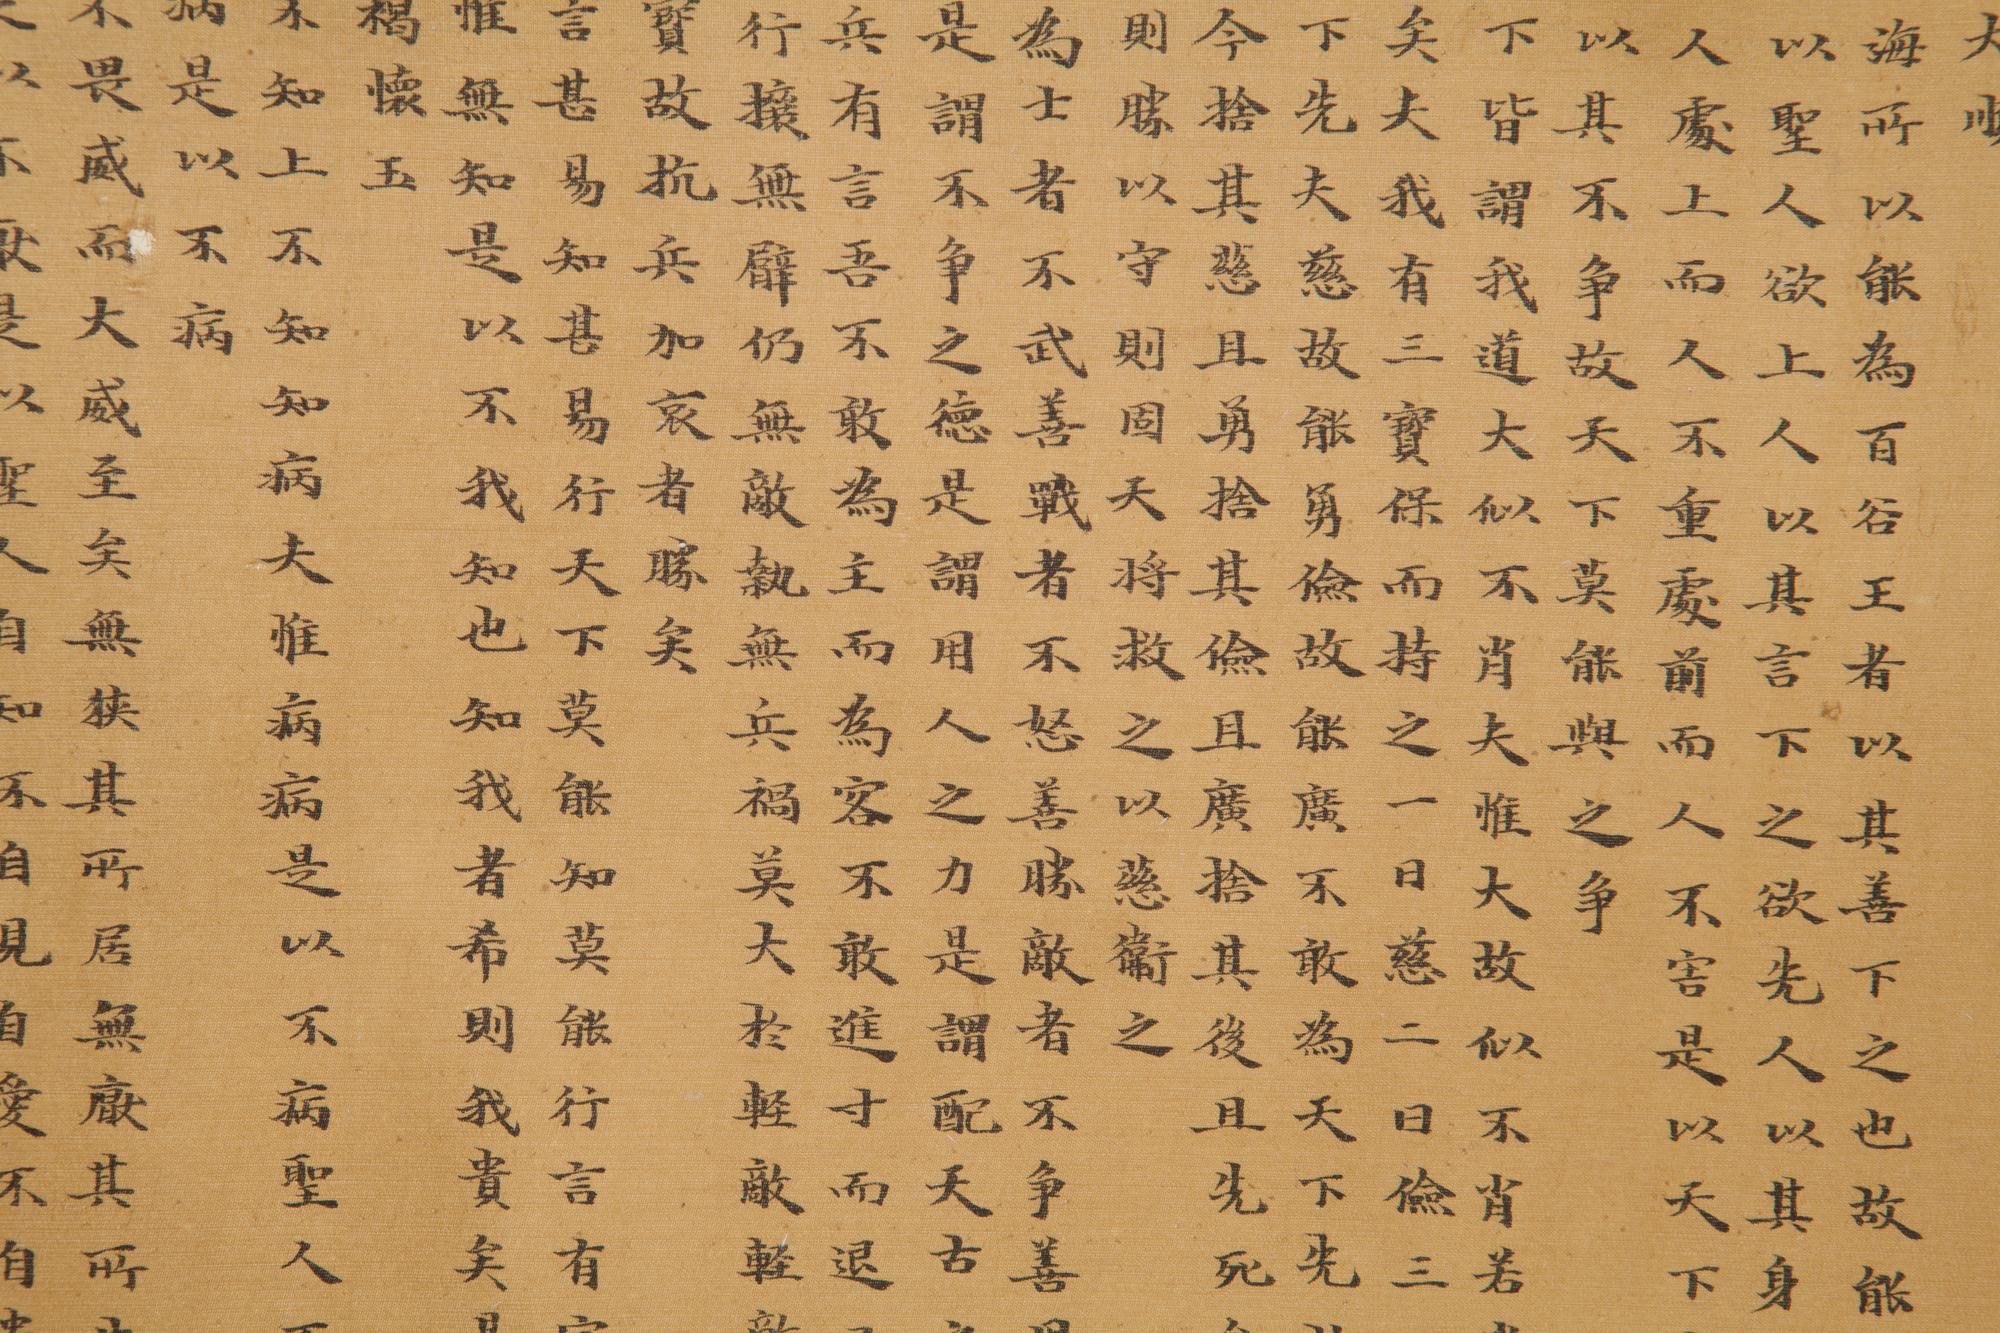 大順
海所以能為百谷王者以其善下之也故能
以聖人欲上人以其言下之欲先人以其身
人處上而人不重處前而人不害是以天下
以其不争故天下莫能與之争
下皆謂我道大似不肖夫惟大故似不肖若
矣夫我有三寶保而持之一曰慈二曰儉三
下先夫慈故能勇儉故能廣不敢為天下先
今捨其慈且勇捨其儉且廣捨其後且先死
則勝以守則固天将救之以慈衞之
為士者不武善戰者不怒善勝敵者不争善
是謂不争之德是謂用人之力是謂配天古
兵有言吾不敢為主而為客不敢進寸而退
行攘無臂仍無敵執無兵禍莫大於軽敵軽
寶故抗兵加哀者勝矣
言甚易知甚易行天下莫能知莫能行言有
惟無知是以不我知也知我者希則我貴矣
褐懷玉
不知上不知知病夫惟病病是以不病聖人不
病是以不病
不畏威而大威至矣無狹其所居無厭其所
以不厭是以聖人自知不自見自愛不自